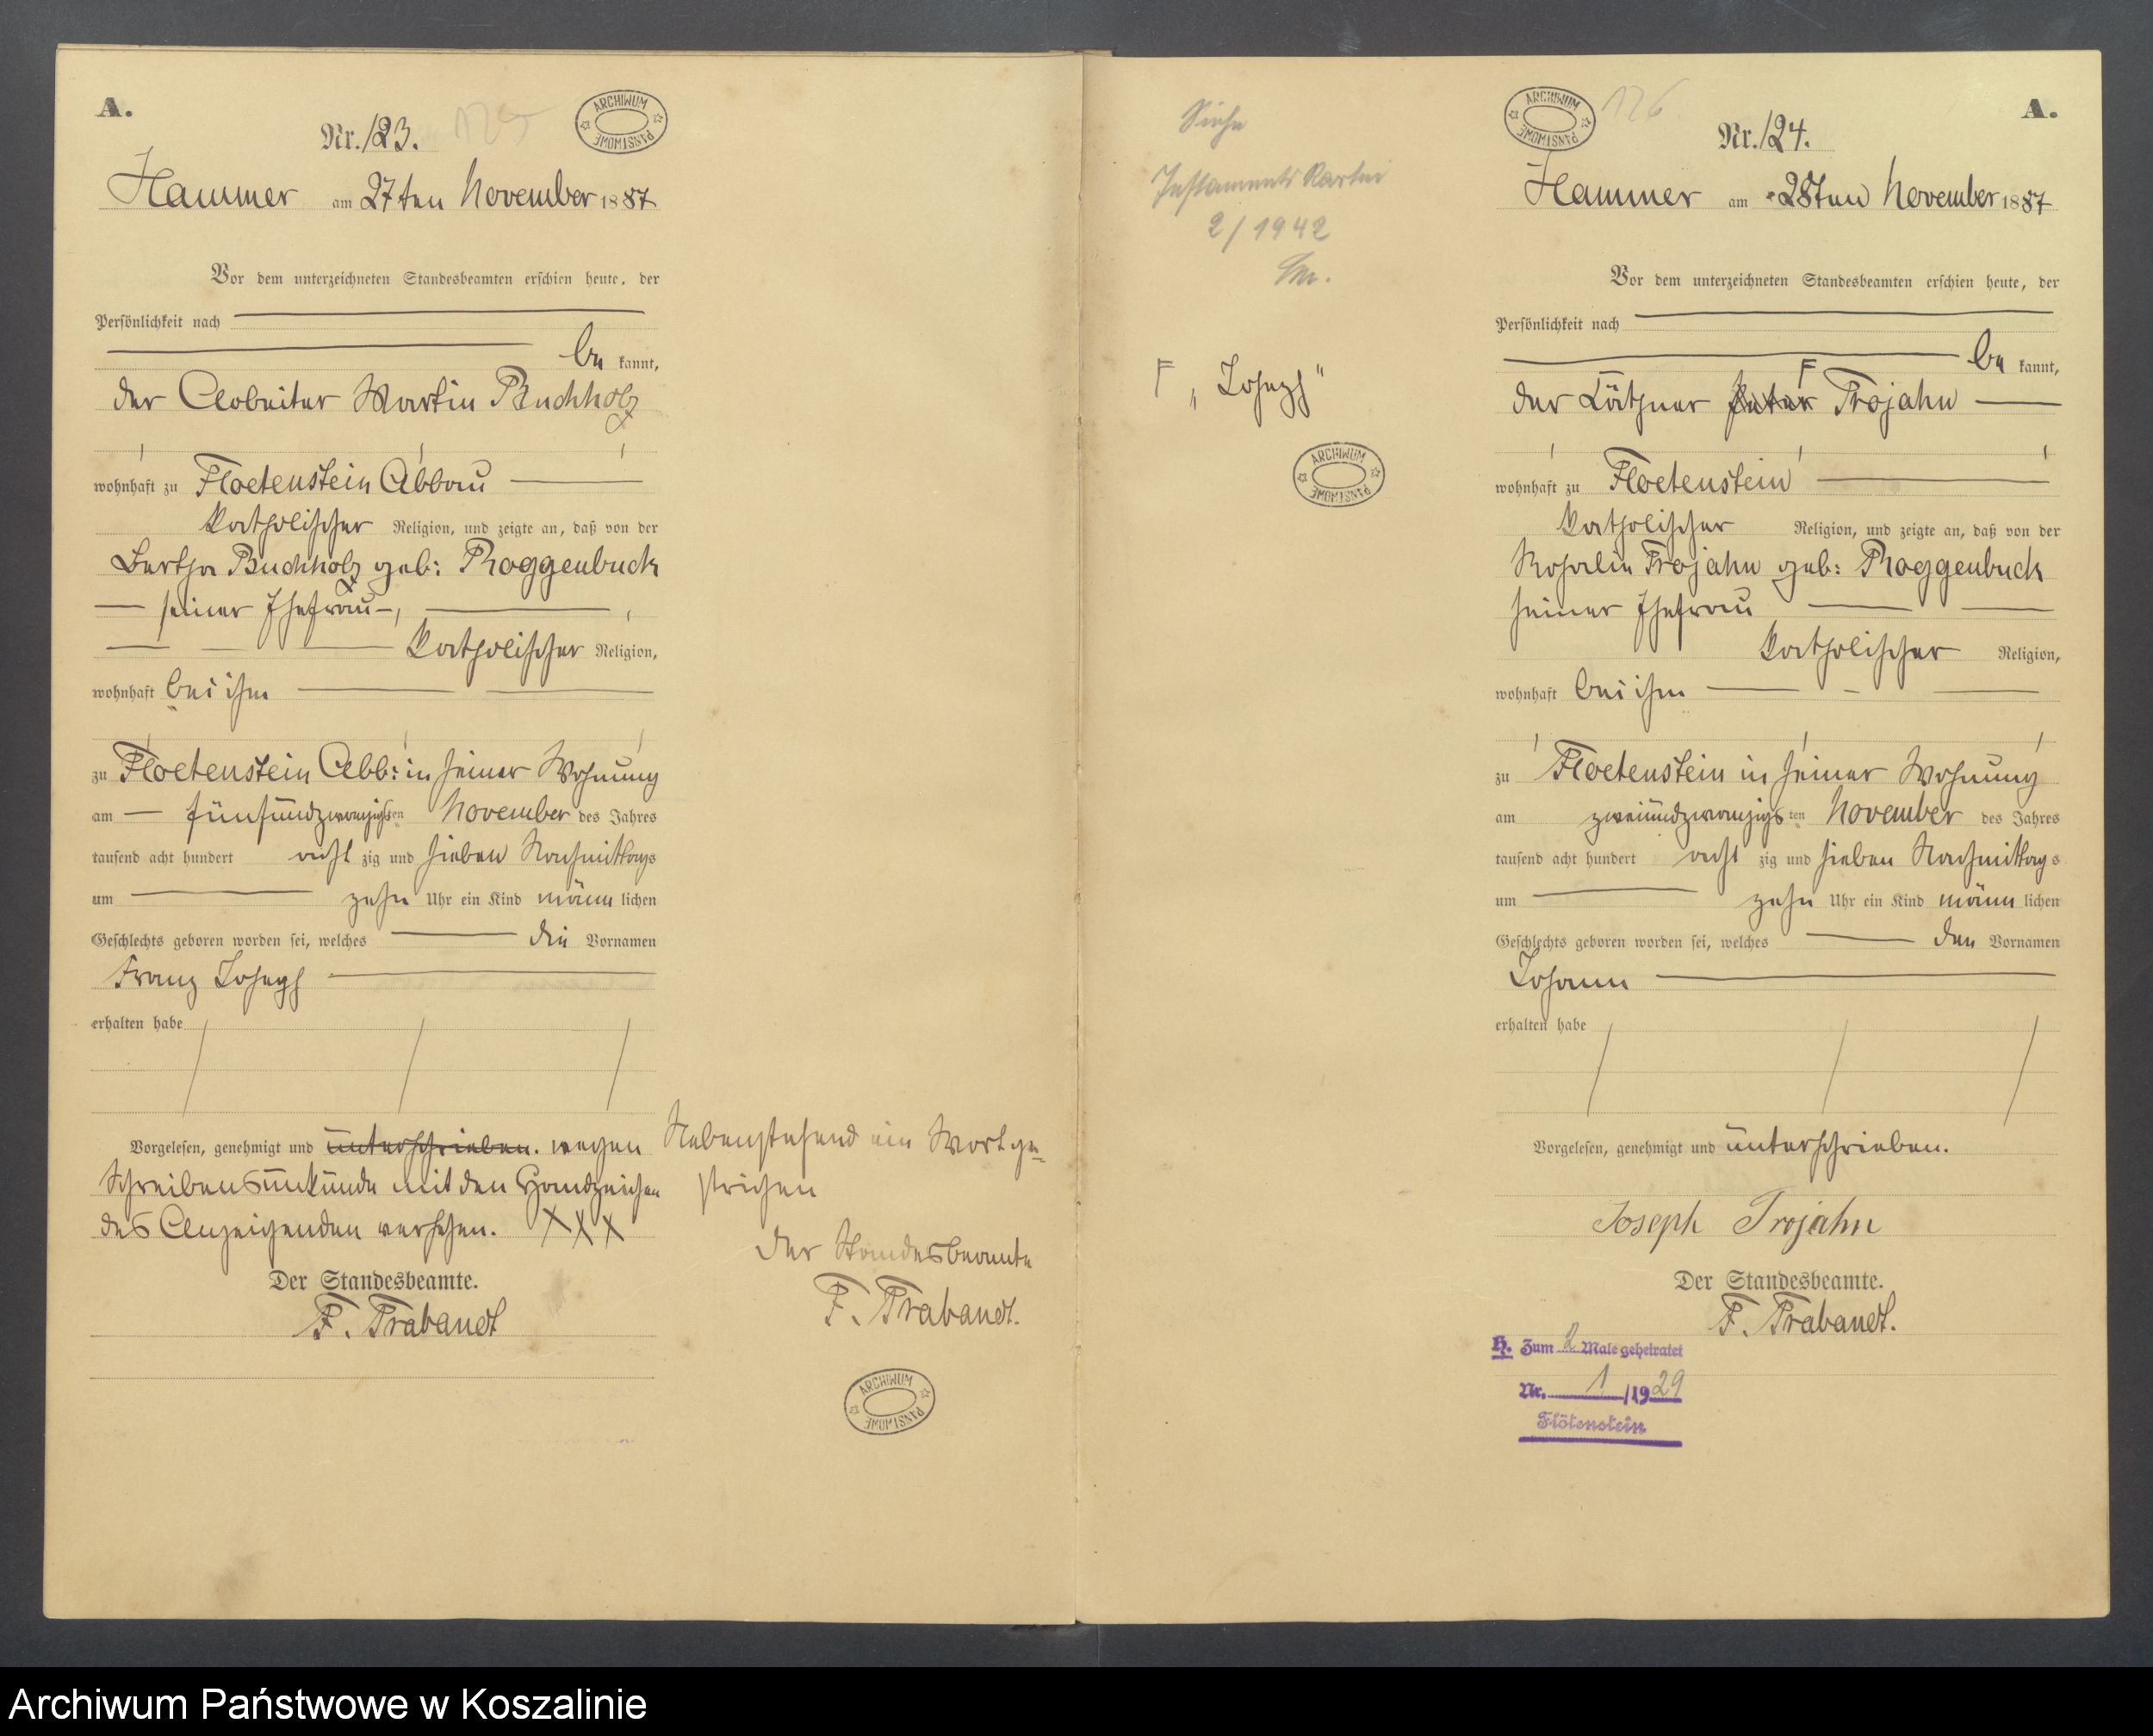 A.
Nr. 123.
125
ARCHIWUM PAŃSTWOWE
Hammer am 27ten November 1887
Vor dem unterzeichneten Standesbeamten erschien heute, der
Persönlichkeit nach
be kannt,
der Arbeiter Martin Buchholz
wohnhaft zu Floetenstein Abbau
katholischer Religion, und zeigte an, daß von der
Bertha Buchholz geb: Roggenbuck
seiner Ehefrau,
katholischer Religion,
wohnhaft bei ihm
zu Floetenstein Abb: in seiner Wohnung
am fünfundzwanzigsten November des Jahres
tausend acht hundert acht zig und sieben Nachmittags
um zehn Uhr ein Kind männ lichen
Geschlechts geboren worden sei, welches die Vornamen
Franz Joseph
erhalten habe
Vorgelesen, genehmigt und unterschrieben. wegen
Schreibensunkunde mit den Handzeichen
des Anzeigenden versehen. XXX
Der Standesbeamte.
F. Trabandt
Nebenstehend ein Wort ge-
strichen
Der Standesbeamte
F. Trabandt.
ARCHIWUM PAŃSTWOWE
Siehe
Testaments Kartei
2/1942
F „Joseph"
ARCHIWUM PAŃSTWOWE
ARCHIWUM PAŃSTWOWE
126
A.
Nr. 124.
Hammer am 28ten November 1887
Vor dem unterzeichneten Standesbeamten erschien heute, der
Persönlichkeit nach
be kannt,
F
der Käthner Peter Trojahn
wohnhaft zu Floetenstein
katholischer Religion, und zeigte an, daß von der
Rosalie Trojahn geb: Roggenbuck
seiner Ehefrau
katholischer Religion,
wohnhaft bei ihm
zu Floetenstein in seiner Wohnung
am zweiundzwanzigs ten November des Jahres
tausend acht hundert acht zig und sieben Nachmittags
um zehn Uhr ein Kind männ lichen
Geschlechts geboren worden sei, welches den Vornamen
Johann
erhalten habe
Vorgelesen, genehmigt und unterschrieben.
Joseph Trojahn
Der Standesbeamte.
F. Trabandt.
H. Zum 2 Male geheiratet
Nr. 1 /1929
Flötenstein
Archiwum Państwowe w Koszalinie